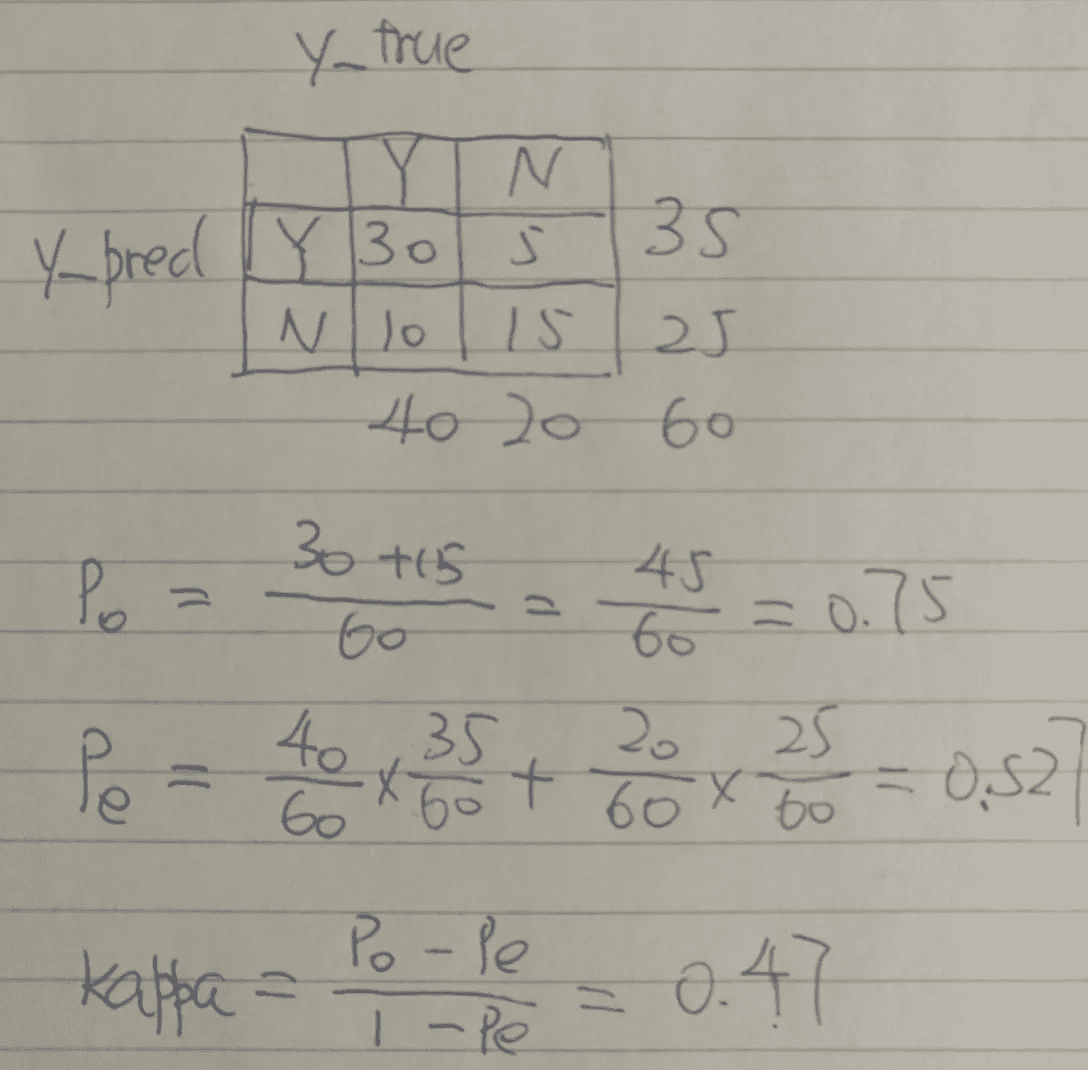 y_true
Y N
y_pred Y 30 5 35
N 10 15 25
40 20 60
Po = (30 + 15) / 60 = 45 / 60 = 0.75
Pe = 40/60 x 35/60 + 20/60 x 25/60 = 0.527
kappa = (Po - Pe) / (1 - Pe) = 0.47